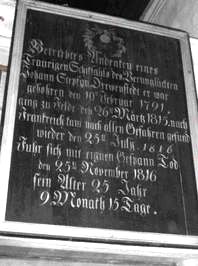 Betrübtes Andenken eines
Traurigen Schicksahls des Verunglückten
Johann Stephan er war
gebohren den 10ᵗ Februar 1791.
ging zu Felde den 26ᵗ Märtz 1815. nach
Frankreich kam nach allen Gefahren gesund
wieder den 25ᵗ July 1816
Fuhr sich mit eignen Gespann Tod
den 25ᵗ November 1816
sein Alter 25 Jahr
9 Monath 15 Tage.